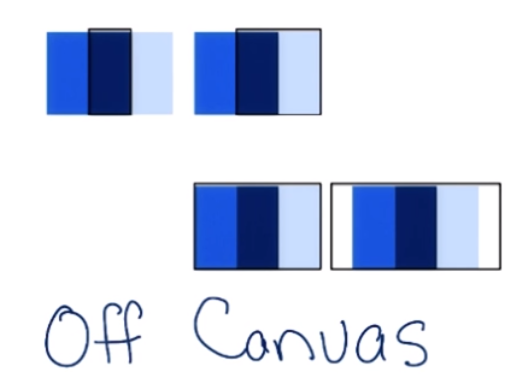 Off Canvas